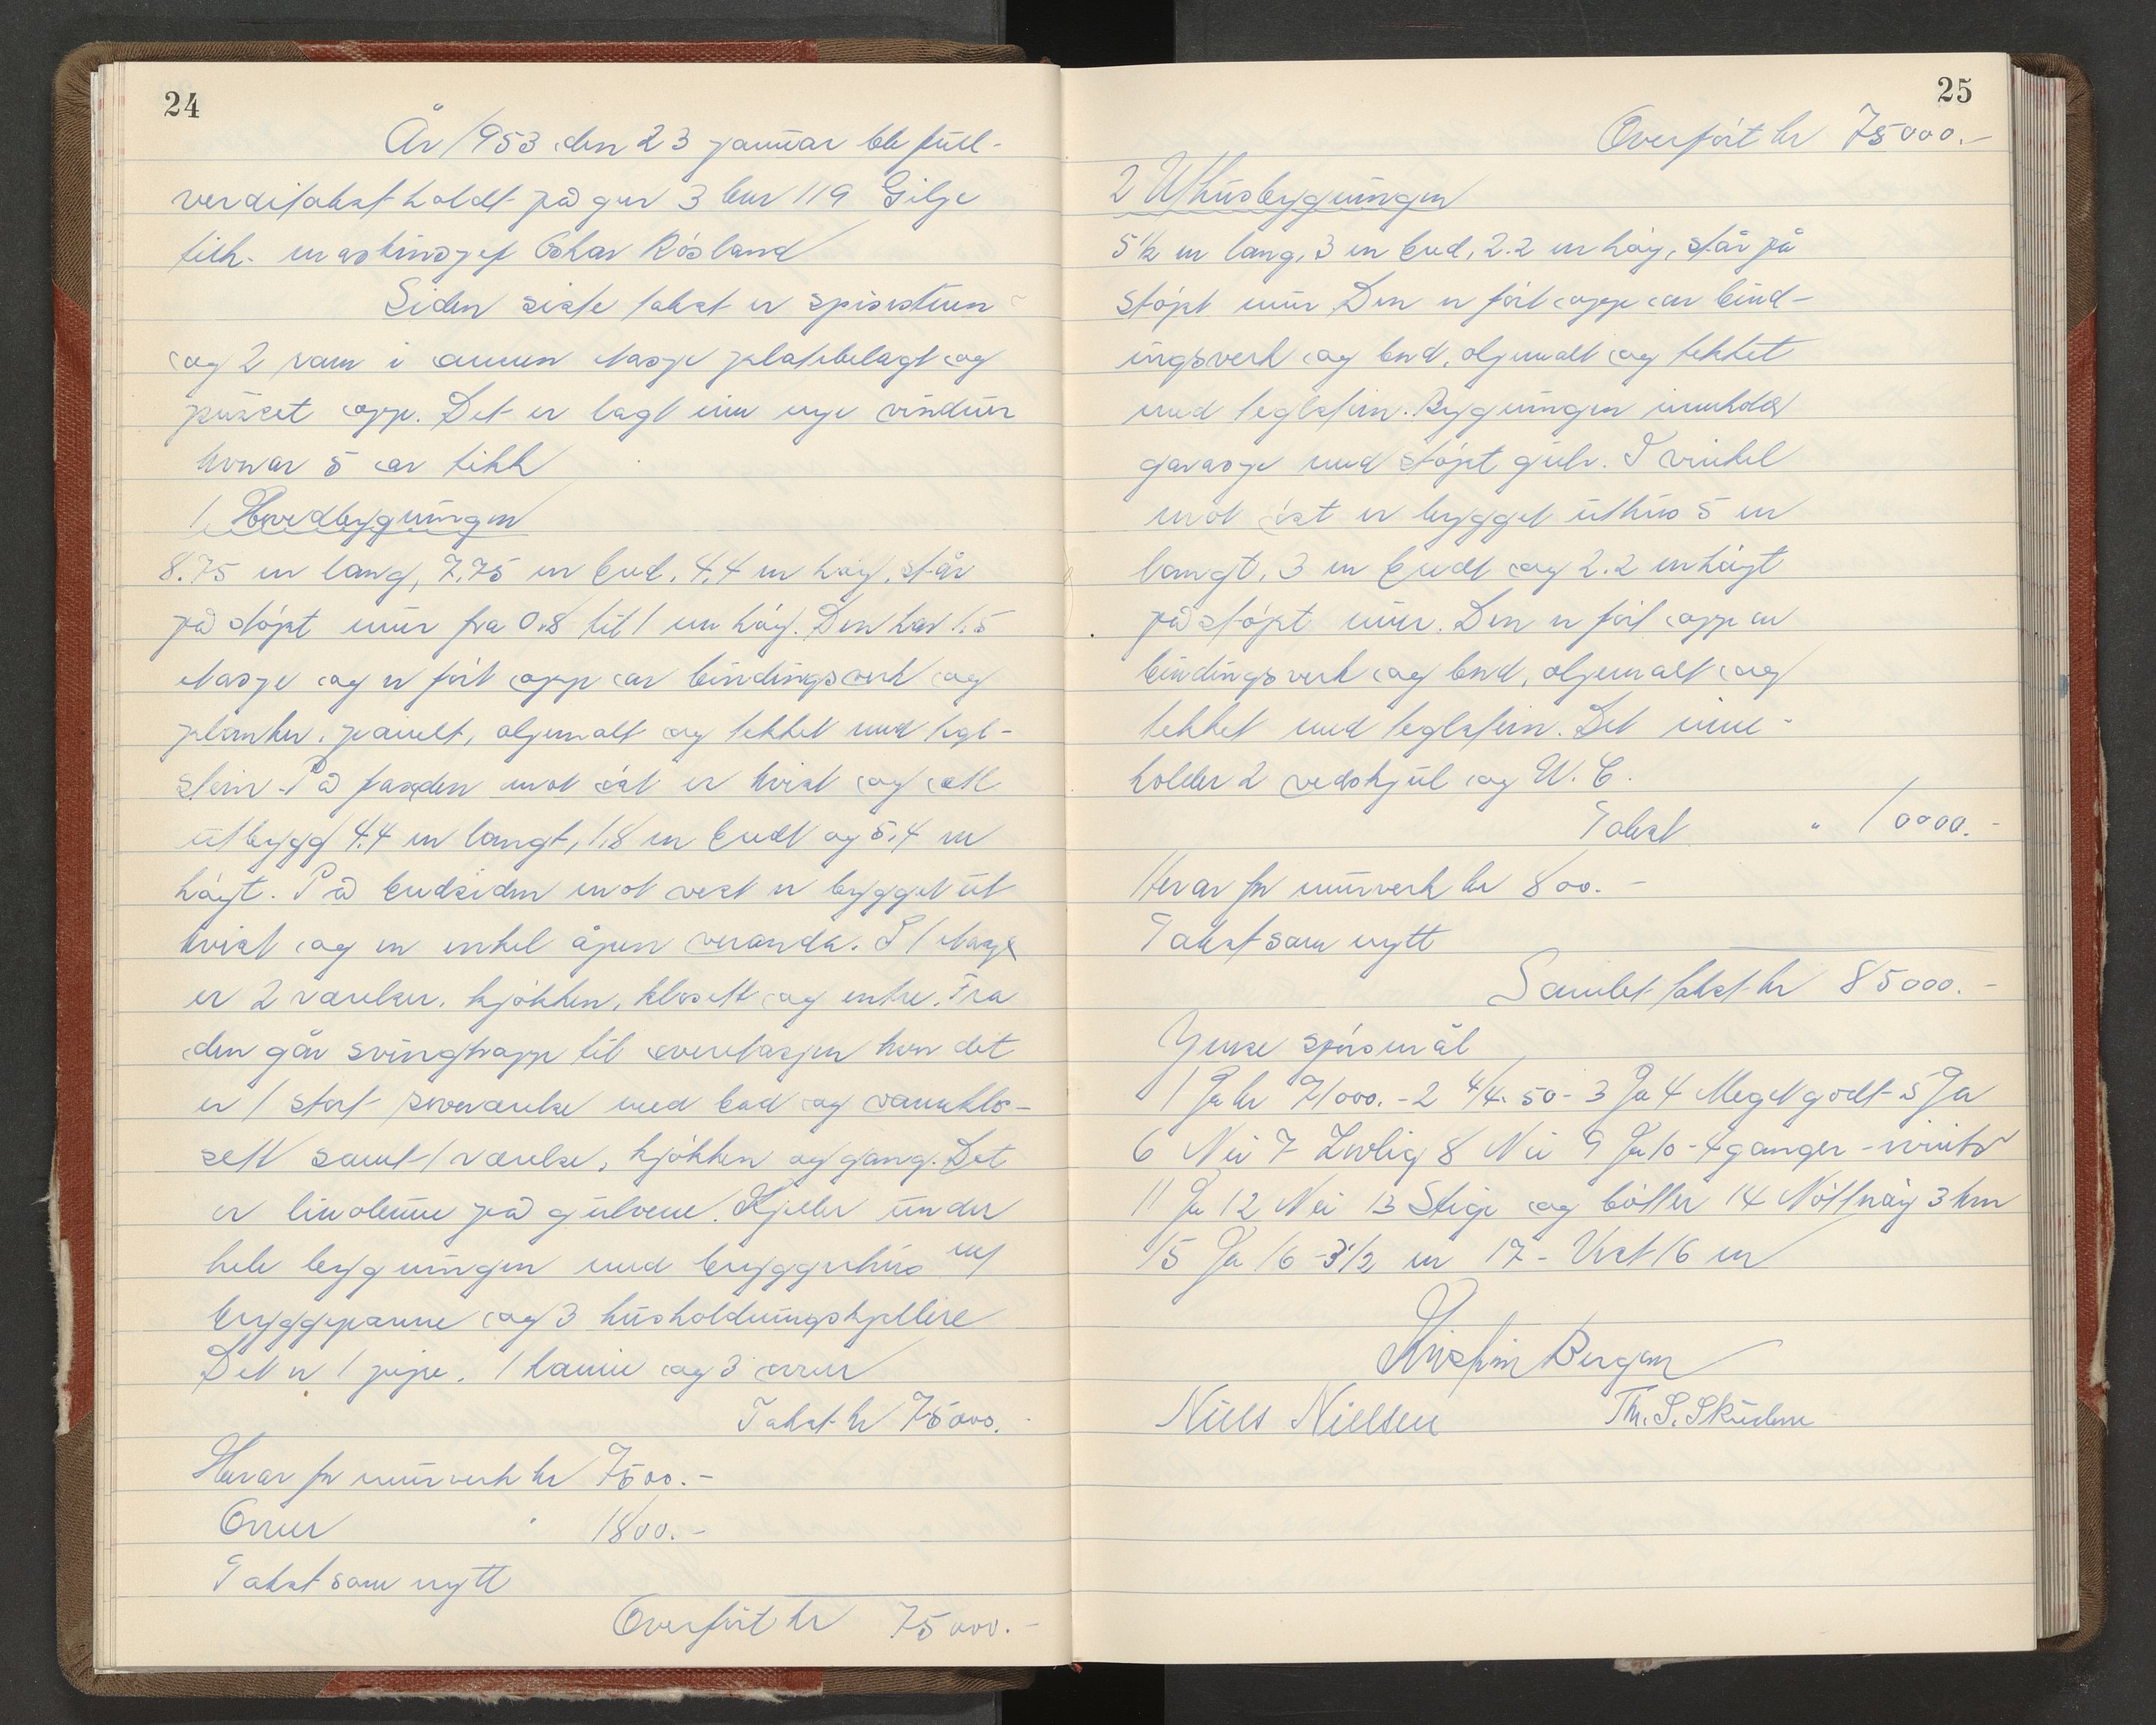 24
År 1953 den 23 januar ble full-
verditakst holdt på gnr 3 bnr 119 Gilje
tilh. maskinsjef Oskar Rösland
Siden siste takst er spisestuen
og 2 rom i annen etasje platebelagt og
pusset opp. Det er lagt inn nye vinduer
hvorav 5 av tikk
1 Hovedbygningen
8.75 m lang, 7.75 m bred, 4.4 m høy, står
på støpt mur fra 0.8 til 1 m høy. Den har 1.5
etasje og er ført opp av bindingsverk og
planker, panelt, oljemalt og tekket med tegl-
stein. På fasaden mot øst er kvist og ett
utbygg 4.4 m langt, 1.8 m bredt og 5.4 m
høyt. På bredsiden mot vest er bygget ut
kvist og en enkel åpen veranda. I 1 etasje
er 2 værelser, kjøkken, klosett og entre. Fra
den går svingtrapp til overetasjen hvor det
er 1 stort soveværelse med bad og vannklo-
sett samt 1 værelse, kjøkken og gang. Det
er linoleum på gulvene. Kjeller under
hele bygningen med bryggerhus m/
bryggepanne og 3 husholdningskjellere
Det er 1 pipe, 1 kamin og 3 ovner
Takst kr 75000.-
Herav for murverk kr 7500.-
Ovner " 1800.-
Takst som nytt
Overført kr 75000.-
25
Overført kr 75000.-
2 Uthusbygningen
5 1/2 m lang, 3 m bred, 2.2 m høy, står på
støpt mur. Den er ført opp av bind-
ingsverk og bord, oljemalt og tekket
med teglstein. Bygningen inneholder
garasje med støpt gulv. I vinkel
mot øst er bygget uthus 5 m
langt, 3 m bredt og 2.2 m høyt
på støpt mur. Den er ført opp av
bindingsverk og bord, oljemalt og
tekket med teglstein. Det inne-
holder 2 vedskjul og W.C.
Takst " 10000.-
Herav for murverk kr 800.-
Takst som nytt
Samlet takst kr 85000.-
Ymse spørsmål
1 Ja kr 71000.- 2 4/4-50- 3 Ja 4 Meget godt- 5 Ja
6 Nei 7 Lovlig 8 Nei 9 Ja 10 - 4 ganger - vinter
11 Ja 12 Nei 13 Stige og bøtter 14 3 km
15 Ja 16 - 3 1/2 m 17 - Vest 16 m
Kristin Bergen
Niels Nielsen Th. S. Skudene